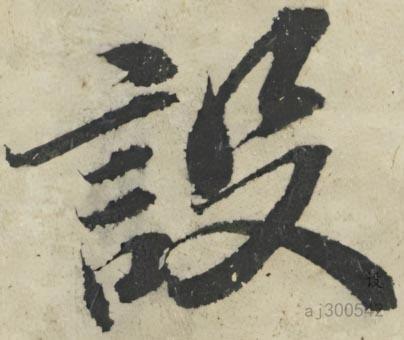 設
设
aj300542